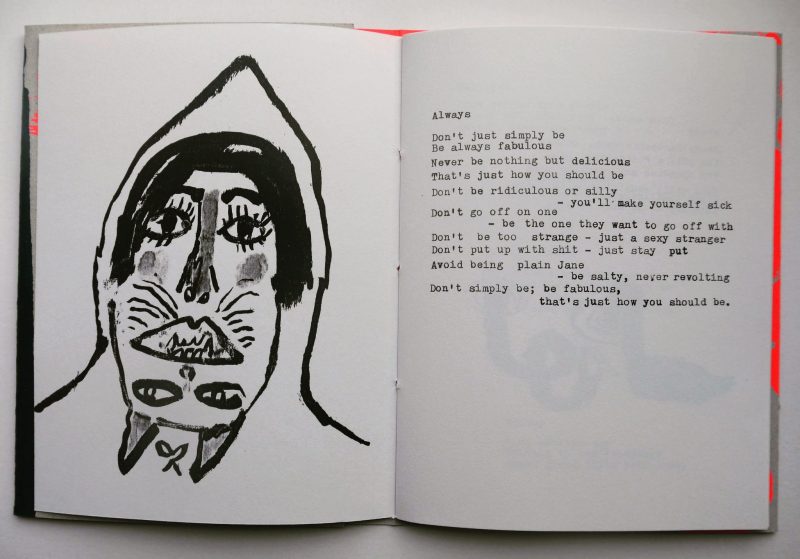 Always
Don't just simply be
Be always fabulous
Never be nothing but delicious
That's just how you should be
Don't be ridiculous or silly
- you'll make yourself sick
Don't go off on one
- be the one they want to go off with
Don't be too strange - just a sexy stranger
Don't put up with shit - just stay put
Avoid being plain Jane
- be salty, never revolting
Don't simply be; be fabulous,
that's just how you should be.